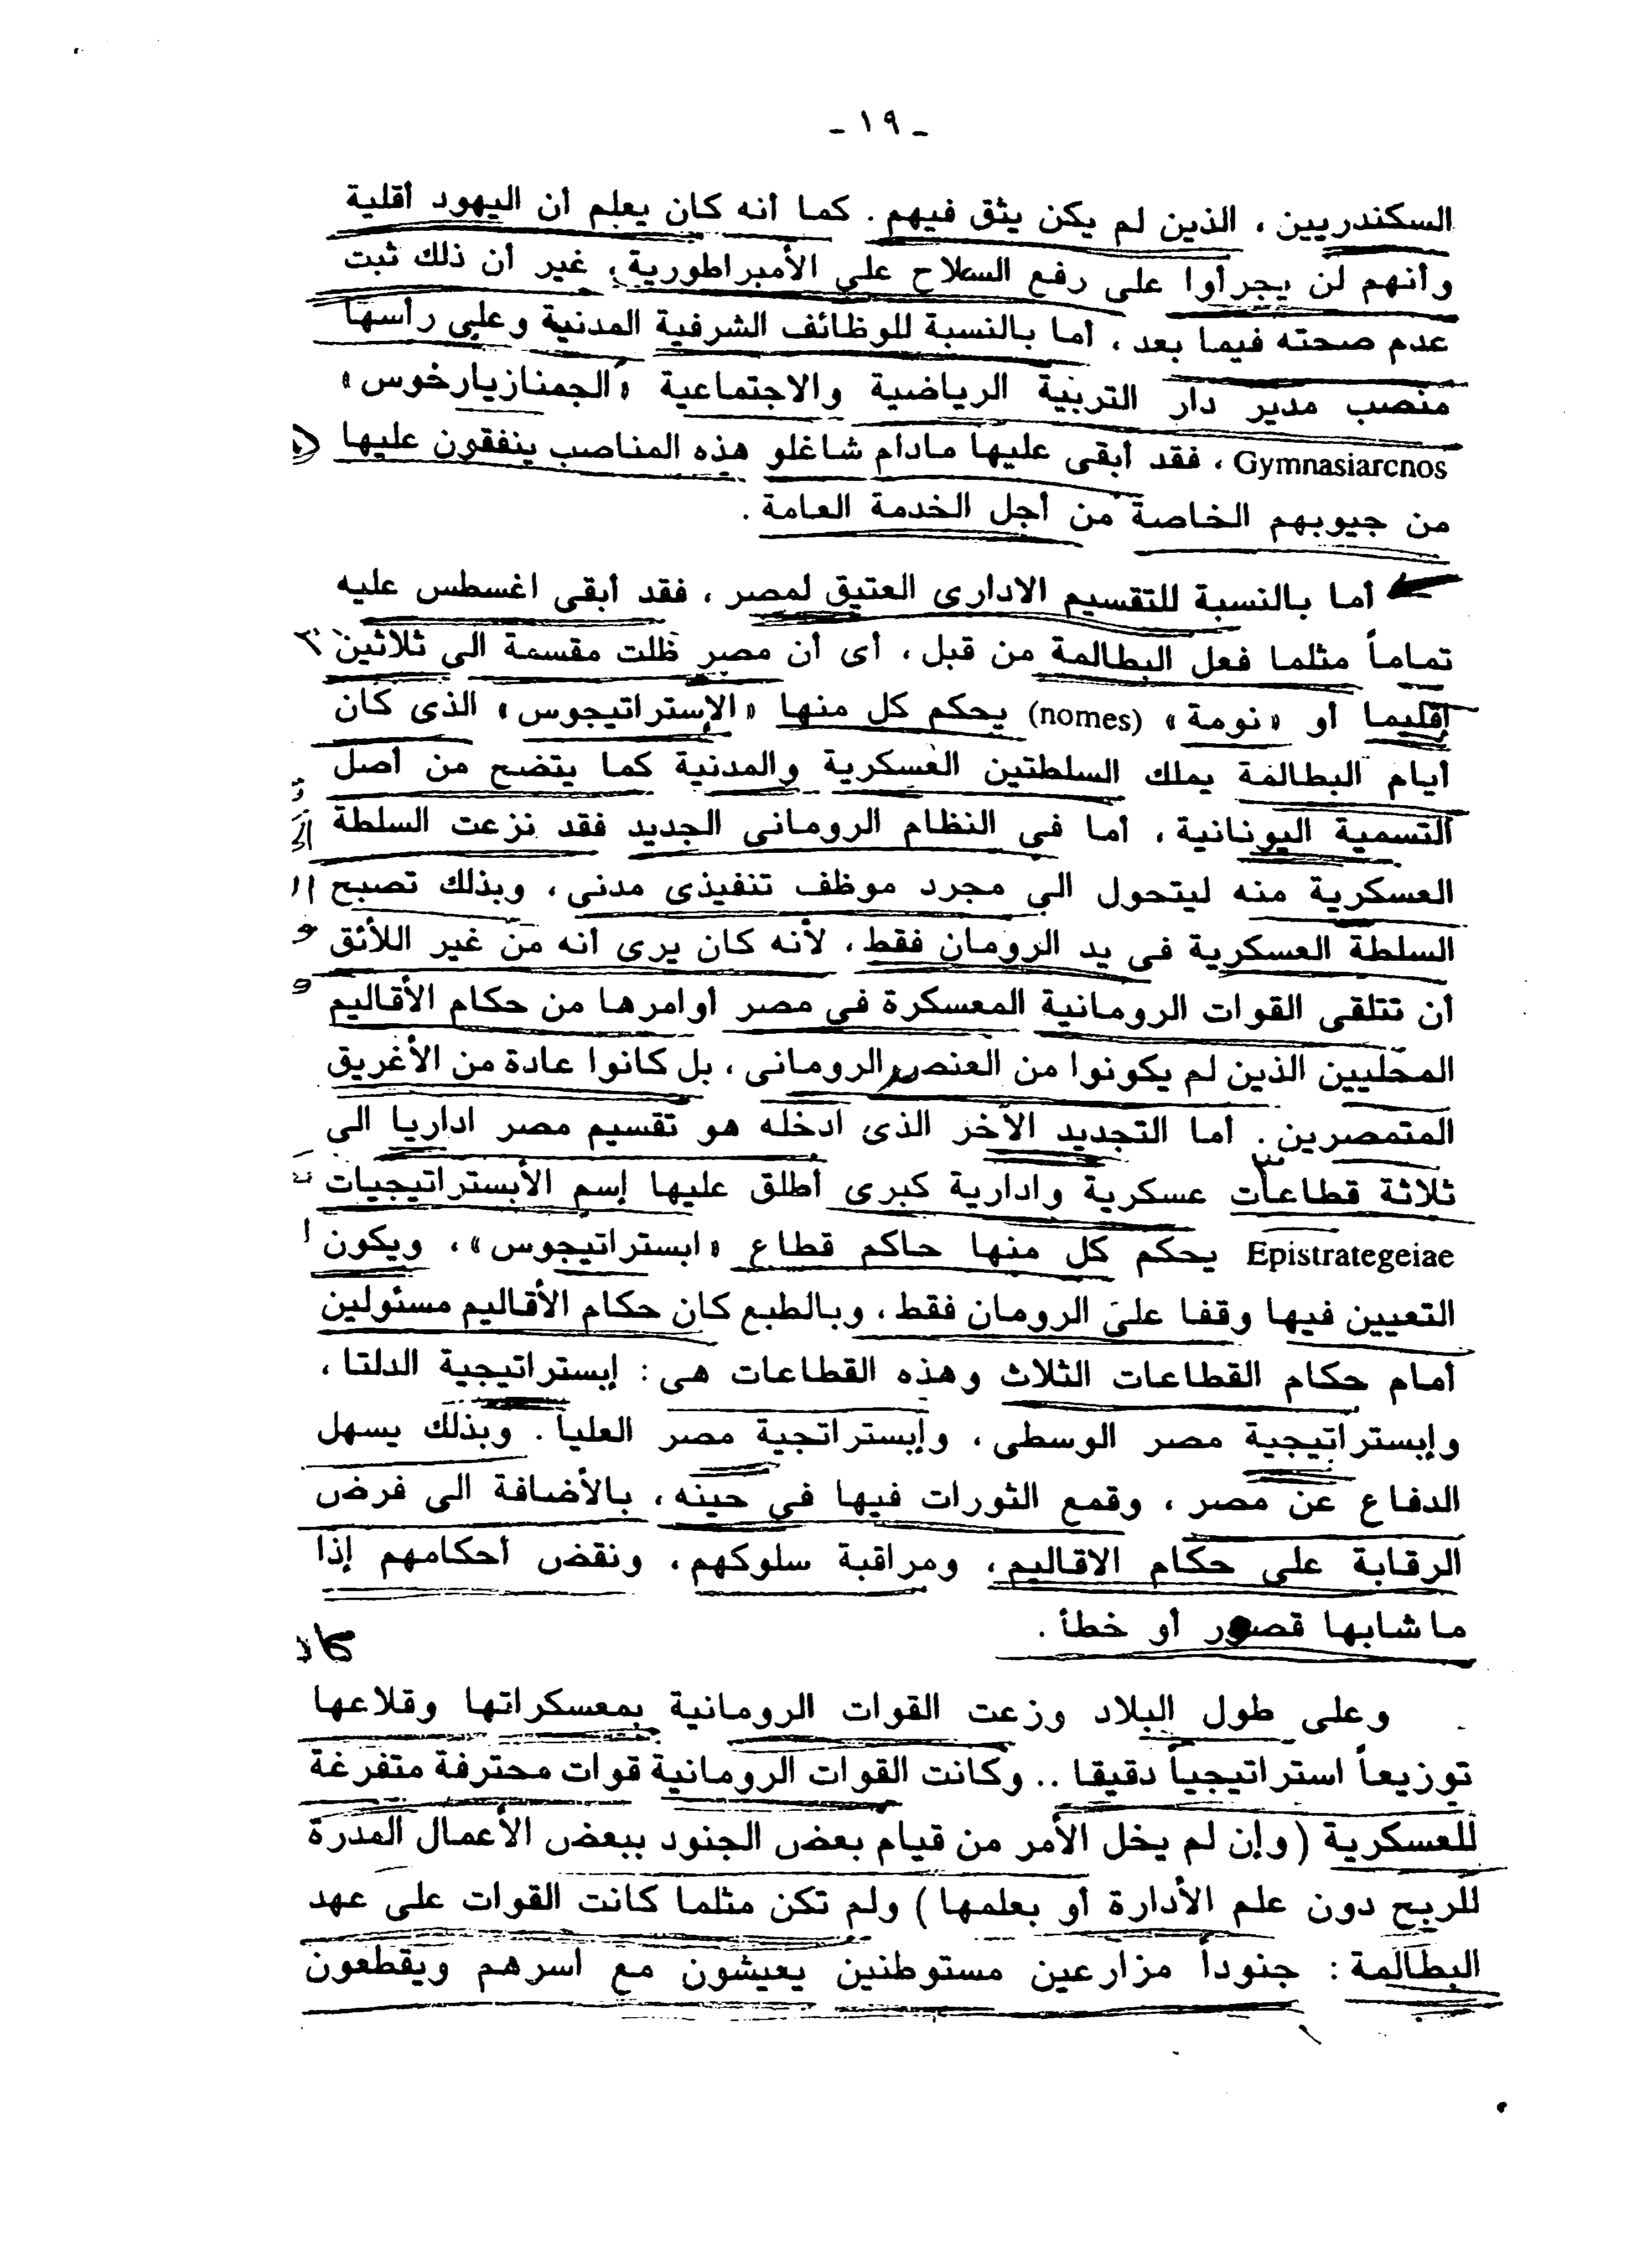 - ١٩ -
السكندريين ، الذين لم يكن يثق فيهم . كما أنه كان يعلم أن اليهود أقلية
وأنهم لن يجرأوا على رفع السلاح على الأمبراطورية ، غير أن ذلك ثبت
عدم صحته فيما بعد ، أما بالنسبة للوظائف الشرفية المدنية وعلى رأسها
منصب مدير دار التربية الرياضية والاجتماعية «الجمنازيارخوس»
Gymnasiarcnos ، فقد أبقى عليها مادام شاغلو هذه المناصب ينفقون عليها
من جيوبهم الخاصة من أجل الخدمة العامة .
أما بالنسبة للتقسيم الادارى العتيق لمصر ، فقد أبقى اغسطس عليه
تماماً مثلما فعل البطالمة من قبل ، أى أن مصر ظلت مقسمة الى ثلاثين
إقليما أو «نومة» (nomes) يحكم كل منها «الإستراتيجوس» الذى كان
أيام البطالمة يملك السلطتين العسكرية والمدنية كما يتضح من أصل
التسمية اليونانية ، أما فى النظام الرومانى الجديد فقد نزعت السلطة
العسكرية منه ليتحول الى مجرد موظف تنفيذى مدنى ، وبذلك تصبح
السلطة العسكرية فى يد الرومان فقط ، لأنه كان يرى أنه من غير اللأئق
أن تتلقى القوات الرومانية المعسكرة فى مصر أوامرها من حكام الأقاليم
المحليين الذين لم يكونوا من العنصر الرومانى ، بل كانوا عادة من الأغريق
المتمصرين . أما التجديد الآخر الذى ادخله هو تقسيم مصر اداريا الى
ثلاثة قطاعات عسكرية وادارية كبرى أطلق عليها إسم الأبستراتيجيات
Epistrategeiae يحكم كل منها حاكم قطاع «ابستراتيجوس» ، ويكون
التعيين فيها وقفا على الرومان فقط ، وبالطبع كان حكام الأقاليم مسئولين
أمام حكام القطاعات الثلاث وهذه القطاعات هى : إبستراتيجية الدلتا ،
وإبستراتيجية مصر الوسطى ، وإبستراتجية مصر العليا . وبذلك يسهل
الدفاع عن مصر ، وقمع الثورات فيها فى حينه ، بالأضافة الى فرض
الرقابة على حكام الاقاليم ، ومراقبة سلوكهم ، ونقض أحكامهم إذا
ما شابها قصور أو خطأ .
وعلى طول البلاد وزعت القوات الرومانية بمعسكراتها وقلاعها
توزيعاً استراتيجياً دقيقا .. وكانت القوات الرومانية قوات محترفة متفرغة
للعسكرية (وإن لم يخل الأمر من قيام بعض الجنود ببعض الأعمال المدرة
للربح دون علم الأدارة أو بعلمها) ولم تكن مثلما كانت القوات على عهد
البطالمة : جنوداً مزارعين مستوطنين يعيشون مع اسرهم ويقطعون